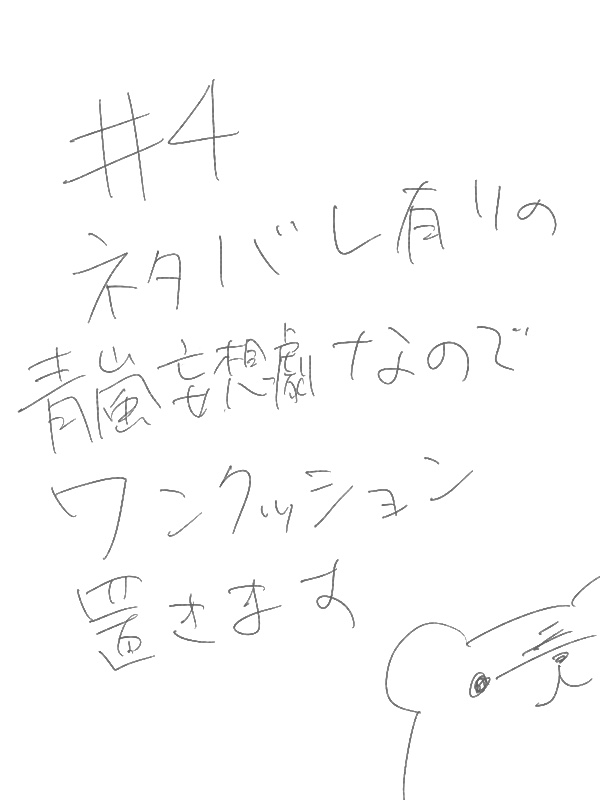 #4
ネタバレ有りの
青嵐妄想劇なので
ワンクッション
置きます